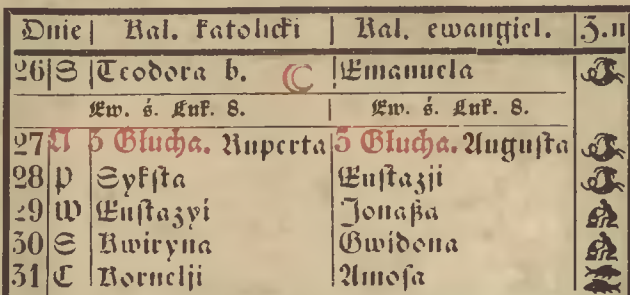 Dnie | Kal. katolicki | Kal. ewangiel. | Z.n
26 S Teodora b. Emanuela
Ew. ś. Łuk. 8. | Ew. ś. Łuk. 8.
27 N 3 Głucha. Ruperta 3 Głucha. Augusta
28 P Syksta Eustazji
29 W Eustazyi Jonasza
30 S Kwiryna Gwidona
31 C Kornelji Amosa